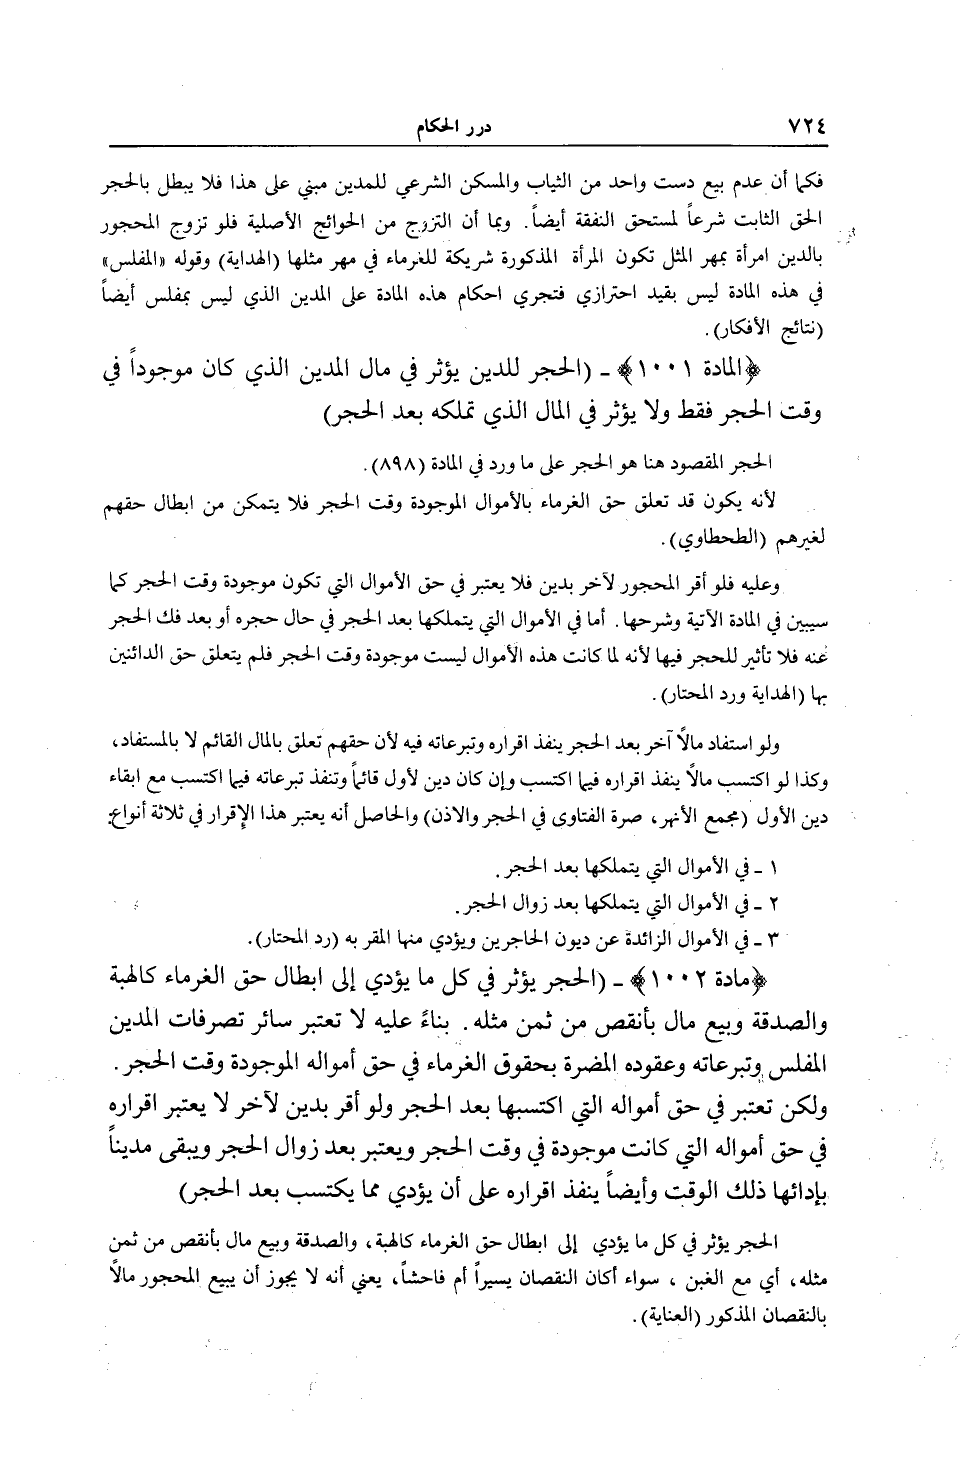 ٧٢٤
درر الحكام
فكما أن عدم بيع دست واحد من الثياب والمسكن الشرعي للمدين مبني على هذا فلا يبطل بالحجر
الحق الثابت شرعاً لمستحق النفقة أيضاً. وبما أن التزوج من الحوائج الأصلية فلو تزوج المحجور
بالدين امرأة بمهر المثل تكون المرأة المذكورة شريكة للغرماء في مهر مثلها (الهداية) وقوله «المفلس»
في هذه المادة ليس بقيد احترازي فتجري احكام هذه المادة على المدين الذي ليس بمفلس أيضاً
(نتائج الأفكار).
﴿المادة ١٠٠١﴾ ـ (الحجر للدين يؤثر في مال المدين الذي كان موجوداً في
وقت الحجر فقط ولا يؤثر في المال الذي تملكه بعد الحجر)
الحجر المقصود هنا هو الحجر على ما ورد في المادة (٨٩٨).
لأنه يكون قد تعلق حق الغرماء بالأموال الموجودة وقت الحجر فلا يتمكن من ابطال حقهم
لغيرهم (الطحطاوي).
وعليه فلو أقر المحجور لآخر بدين فلا يعتبر في حق الأموال التي تكون موجودة وقت الحجر كما
سيبين في المادة الآتية وشرحها. أما في الأموال التي يتملكها بعد الحجر في حال حجره أو بعد فك الحجر
عنه فلا تأثير للحجر فيها لأنه لما كانت هذه الأموال ليست موجودة وقت الحجر فلم يتعلق حق الدائنين
بها (الهداية ورد المحتار).
ولو استفاد مالًا آخر بعد الحجر ينفذ اقراره وتبرعاته فيه لأن حقهم تعلق بالمال القائم لا بالمستفاد،
وكذا لو اكتسب مالًا ينفذ اقراره فيما اكتسب وإن كان دين لأول قائماً وتنفذ تبرعاته فيما اكتسب مع ابقاء
دين الأول (مجمع الأنهر، صرة الفتاوى في الحجر والاذن) والحاصل أنه يعتبر هذا الإقرار في ثلاثة أنواع:
١ ـ في الأموال التي يتملكها بعد الحجر.
٢ ـ في الأموال التي يتملكها بعد زوال الحجر.
٣ ـ في الأموال الزائدة عن ديون الحاجرين ويؤدي منها المقر به (رد المحتار).
﴿مادة ١٠٠٢﴾ ـ (الحجر يؤثر في كل ما يؤدي إلى ابطال حق الغرماء كالهبة
والصدقة وبيع مال بأنقص من ثمن مثله. بناءً عليه لا تعتبر سائر تصرفات المدين
المفلس وتبرعاته وعقوده المضرة بحقوق الغرماء في حق أمواله الموجودة وقت الحجر.
ولكن تعتبر في حق أمواله التي اكتسبها بعد الحجر ولو أقر بدين لآخر لا يعتبر اقراره
في حق أمواله التي كانت موجودة في وقت الحجر ويعتبر بعد زوال الحجر ويبقى مديناً
بإدائها ذلك الوقت وأيضاً ينفذ اقراره على أن يؤدي مما يكتسب بعد الحجر)
الحجر يؤثر في كل ما يؤدي إلى ابطال حق الغرماء كالهبة، والصدقة وبيع مال بأنقص من ثمن
مثله، أي مع الغبن ، سواء أكان النقصان يسيراً أم فاحشاً، يعني أنه لا يجوز أن يبيع المحجور مالًا
بالنقصان المذكور (العناية).